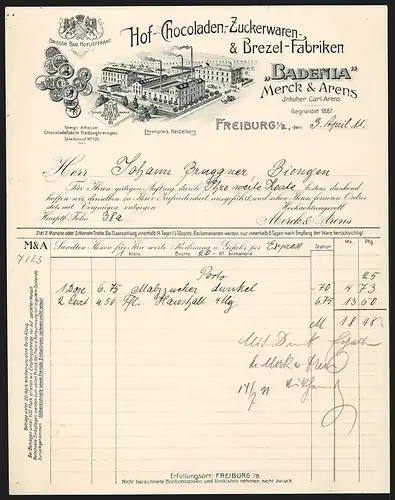 GROSSH. BAD. HOFLIEFERANT
Hof-Chocoladen-, Zuckerwaren-,
& Brezel-Fabriken
„BADENIA"
Merck & Arens
Inhaber: Carl Arens
Gegründet 1887
Telegr.-Adresse:
Chocoladefabrik Freiburgbreisgau.
Telephonruf Nº 120.
Ehrenpreis Heidelberg
FREIBURG i/B., den 3. April 11.
Herr Johann Bruggner, Biengen
Für Ihren gütigen Auftrag durch Ihre werte Karte bestens dankend
hoffen wir denselben zu Ihrer Zufriedenheit ausgeführt und sehen Ihren ferneren Ordres
stets mit Vergnügen entgegen Hochachtungsvoll
Haupth. Folio 38a Merck & Arens
Ziel 2 Monate oder 3 Monate Tratte. Bei Baarzahlung innerhalb 14 Tagen 1½% Sconto. Reclamationen werden nur innerhalb 8 Tagen nach Empfang der Ware berücksichtigt.
M&A Sandten Ihnen für Ihre werte Rechnung u. Gefahr per Express Station Mk. Pfg.
7123 1 Kiste Brutto 20 Kº Enthaltend
Porto 25
1 Dose 6.75 Malzzucker dunkel 70 4 73
2 a 50 Pfl. 6.75 13 50
M 18 48
Mit Dank
Merck & Arens
Erfüllungsort: FREIBURG i/B
Nicht berechnete Bonbonsdosen und Umkisten nehmen nicht zurück